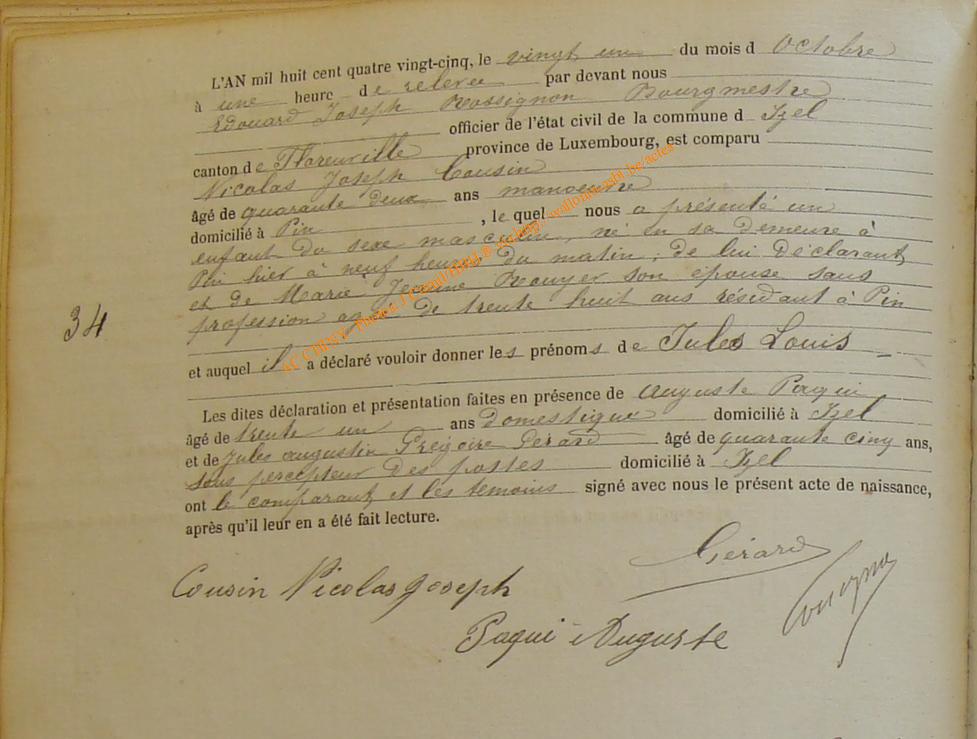 L'AN mil huit cent quatre vingt-cinq, le vingt un du mois d Octobre
à une heure de relevée par devant nous
Edouard Joseph Rossignon Bourgmestre
officier de l'état civil de la commune d Izel
canton de Florenville province de Luxembourg, est comparu
Nicolas Joseph Cousin
âgé de quarante deux ans manoeuvre
domicilié à Pin , le quel nous a présenté un
enfant du sexe masculin, né en sa demeure à
Pin hier à neuf heures du matin, de lui déclarant,
et de Marie Jeanne Rouyer son epouse sans
profession agée de trente huit ans résidant à Pin
34
et auquel il a déclaré vouloir donner les prénoms de Jules Louis
Les dites déclaration et présentation faites en présence de Auguste Paqui
âgé de trente un ans Domestique domicilié à Izel
et de Jules Augustin Grégoire Gérard âgé de quarante cinq ans,
sous percepteur des postes domicilié à Izel
ont le comparant et les temoins signé avec nous le présent acte de naissance,
après qu'il leur en a été fait lecture.
Gérard
Cousin Nicolas Joseph
Paqui Auguste